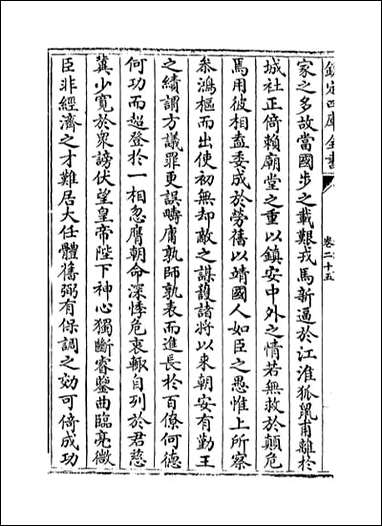 欽定四庫全書
卷二十五
家之多故當國步之載艱戎馬新逼於江淮狐鼠甫離於
城社正倚賴廟堂之重以鎮安中外之情若無救於顛危
馬用彼相盍委成於勞舊以靖國人如臣之愚惟上所察
叅鴻樞而出使初無却敵之謀護諸將以來朝安有勤王
之績謂方議罪更誤疇庸孰師孰表而進長於百僚何德
何功而超登於一相忽膺朝命深悸危衷輙自列於君慈
冀少寛於衆謗伏望皇帝陛下神心獨斷睿鑒曲臨亮微
臣非經濟之才難居大任體舊弼有保調之効可倚成功